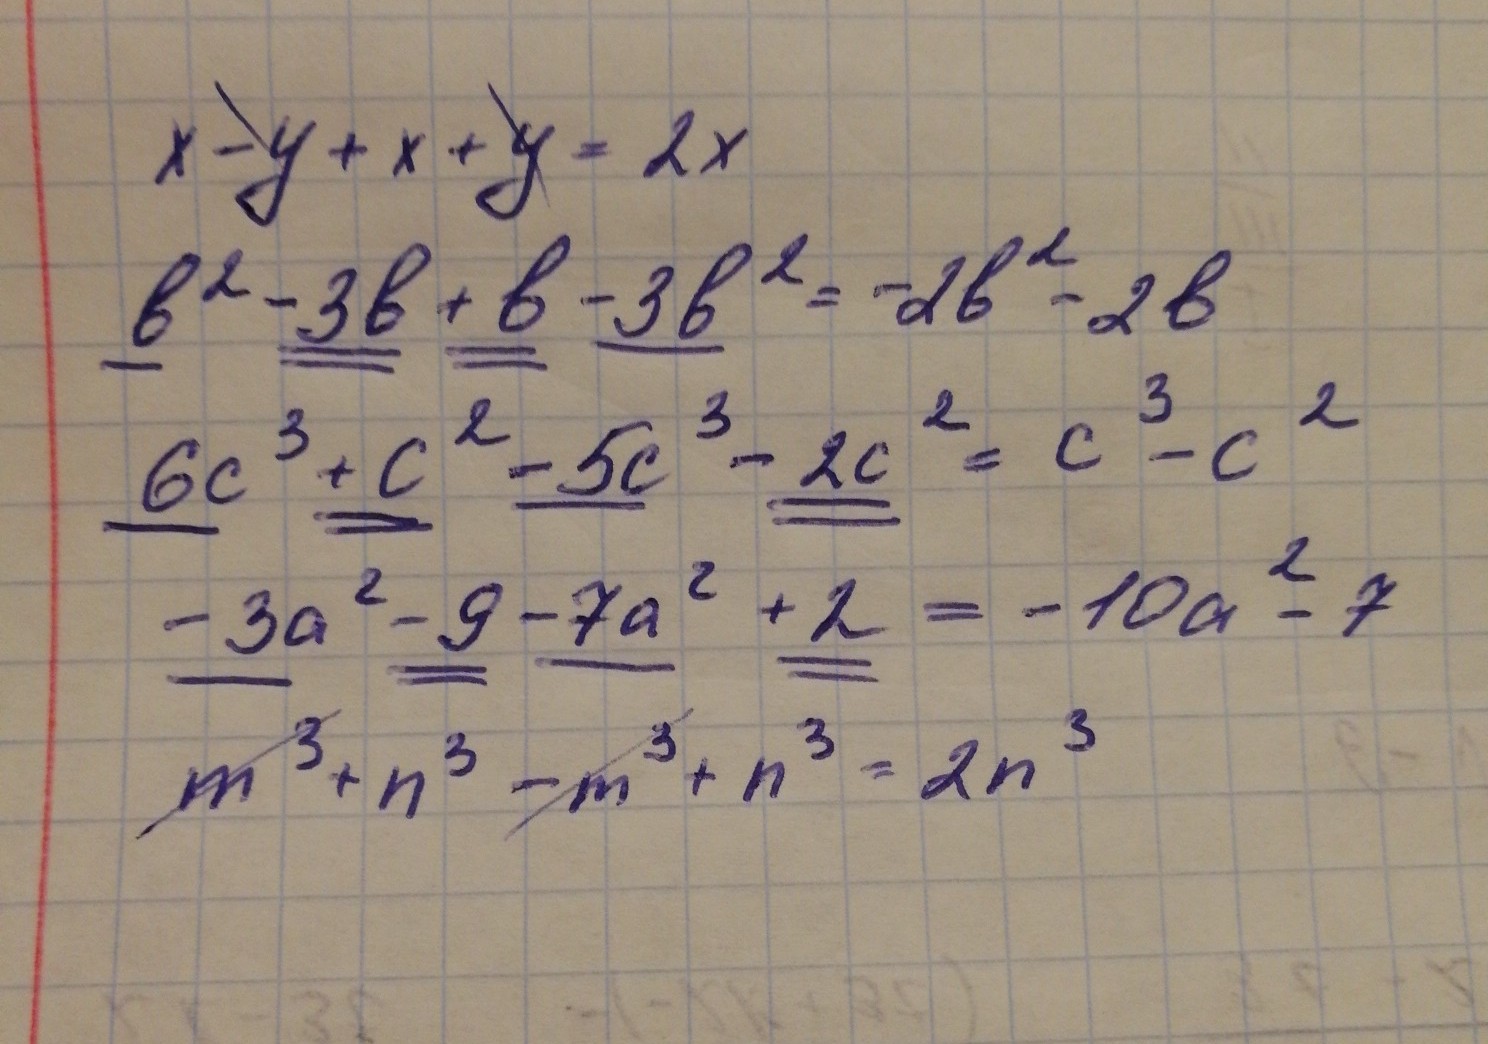 x - y + x + y = 2x
b² - 3b + b - 3b² = -2b² - 2b
6c³ + c² - 5c³ - 2c² = c³ - c²
-3a² - 9 - 7a² + 2 = -10a² - 7
m³ + n³ - m³ + n³ = 2n³